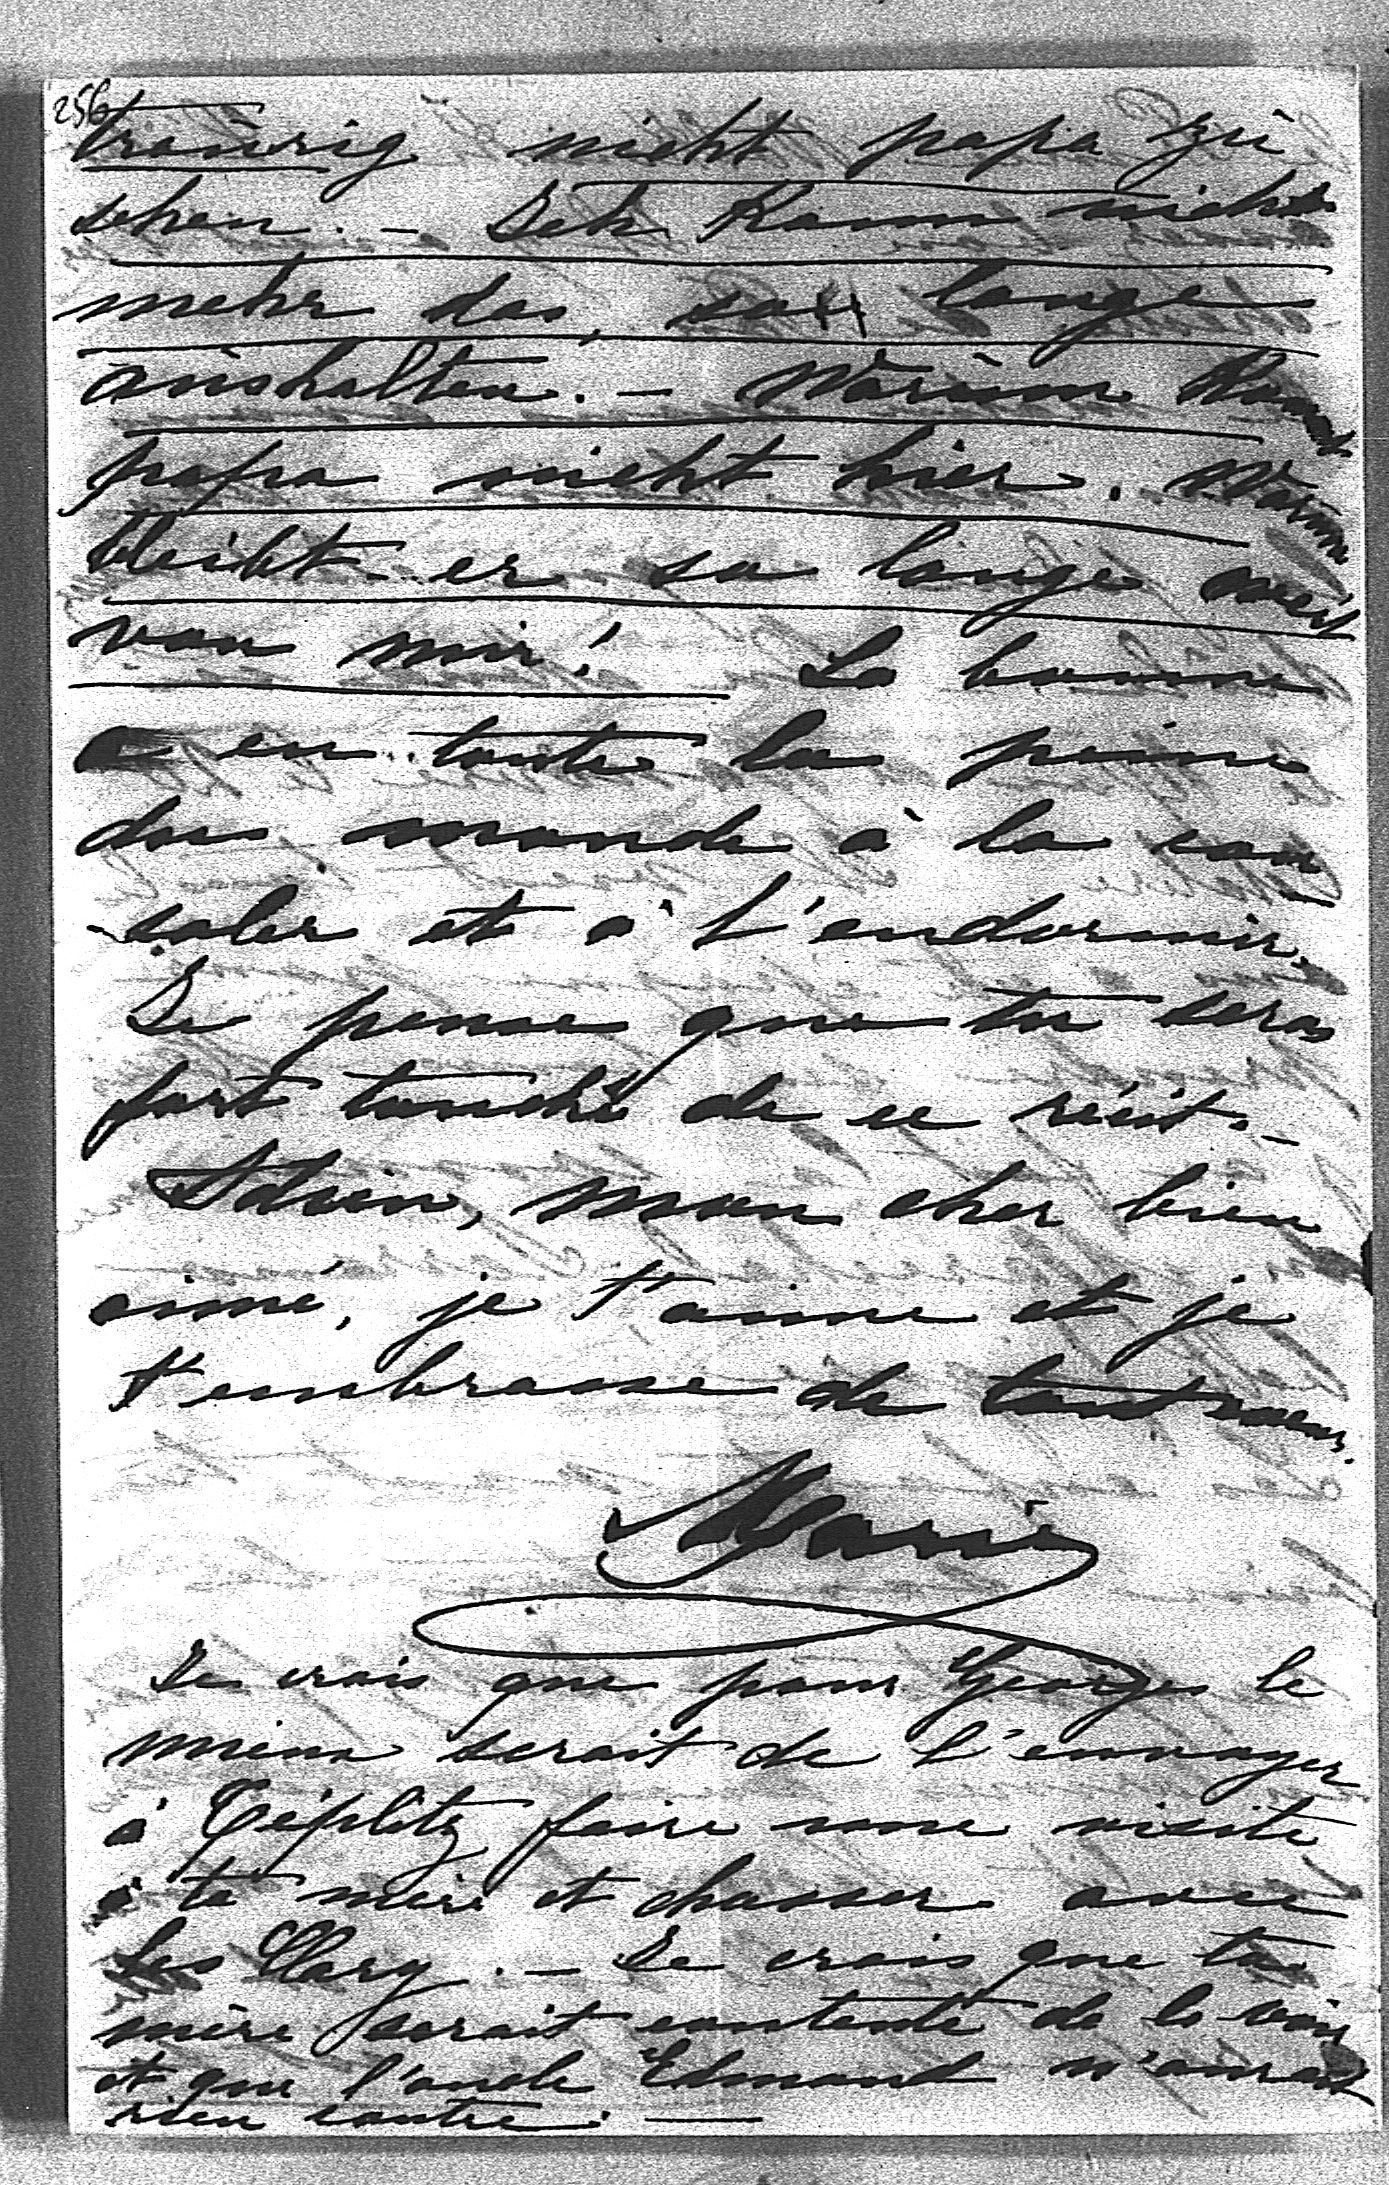 256
traurig nicht papa zu
sehen. – Ich kann nicht
mehr das so lange
aushalten. – Warum kommt
papa nicht hier. Warum
bleibt er so lange weit
von mir! La bonne
a eu toute la peine
du monde à la con
soler et à l'endormir.
Je pense que tu seras
fort touché de ce récit. –
Adieu, mon cher bien
aimé, je t'aime et je
t'embrasse de tout coeur.
Marie
Je crois que pour Georges le
mieux serait de l'envoyer
à Téplitz faire une visite
à ta mère et chasser avec
les Clary. – Je crois que ta
mère serait contente de le voir
et que l'oncle Edmond n'aurait
rien contre. –